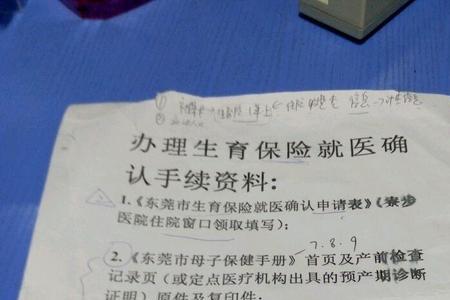 ①
②
办理生育保险就医确
认手续资料：
1.《东莞市生育保险就医确认申请表》（寮步
医院住院窗口领取填写）；
7.8.9
2.《东莞市母子保健手册》首页及产前检查
记录页（或定点医疗机构出具的预产期诊断
证明）原件及复印件；